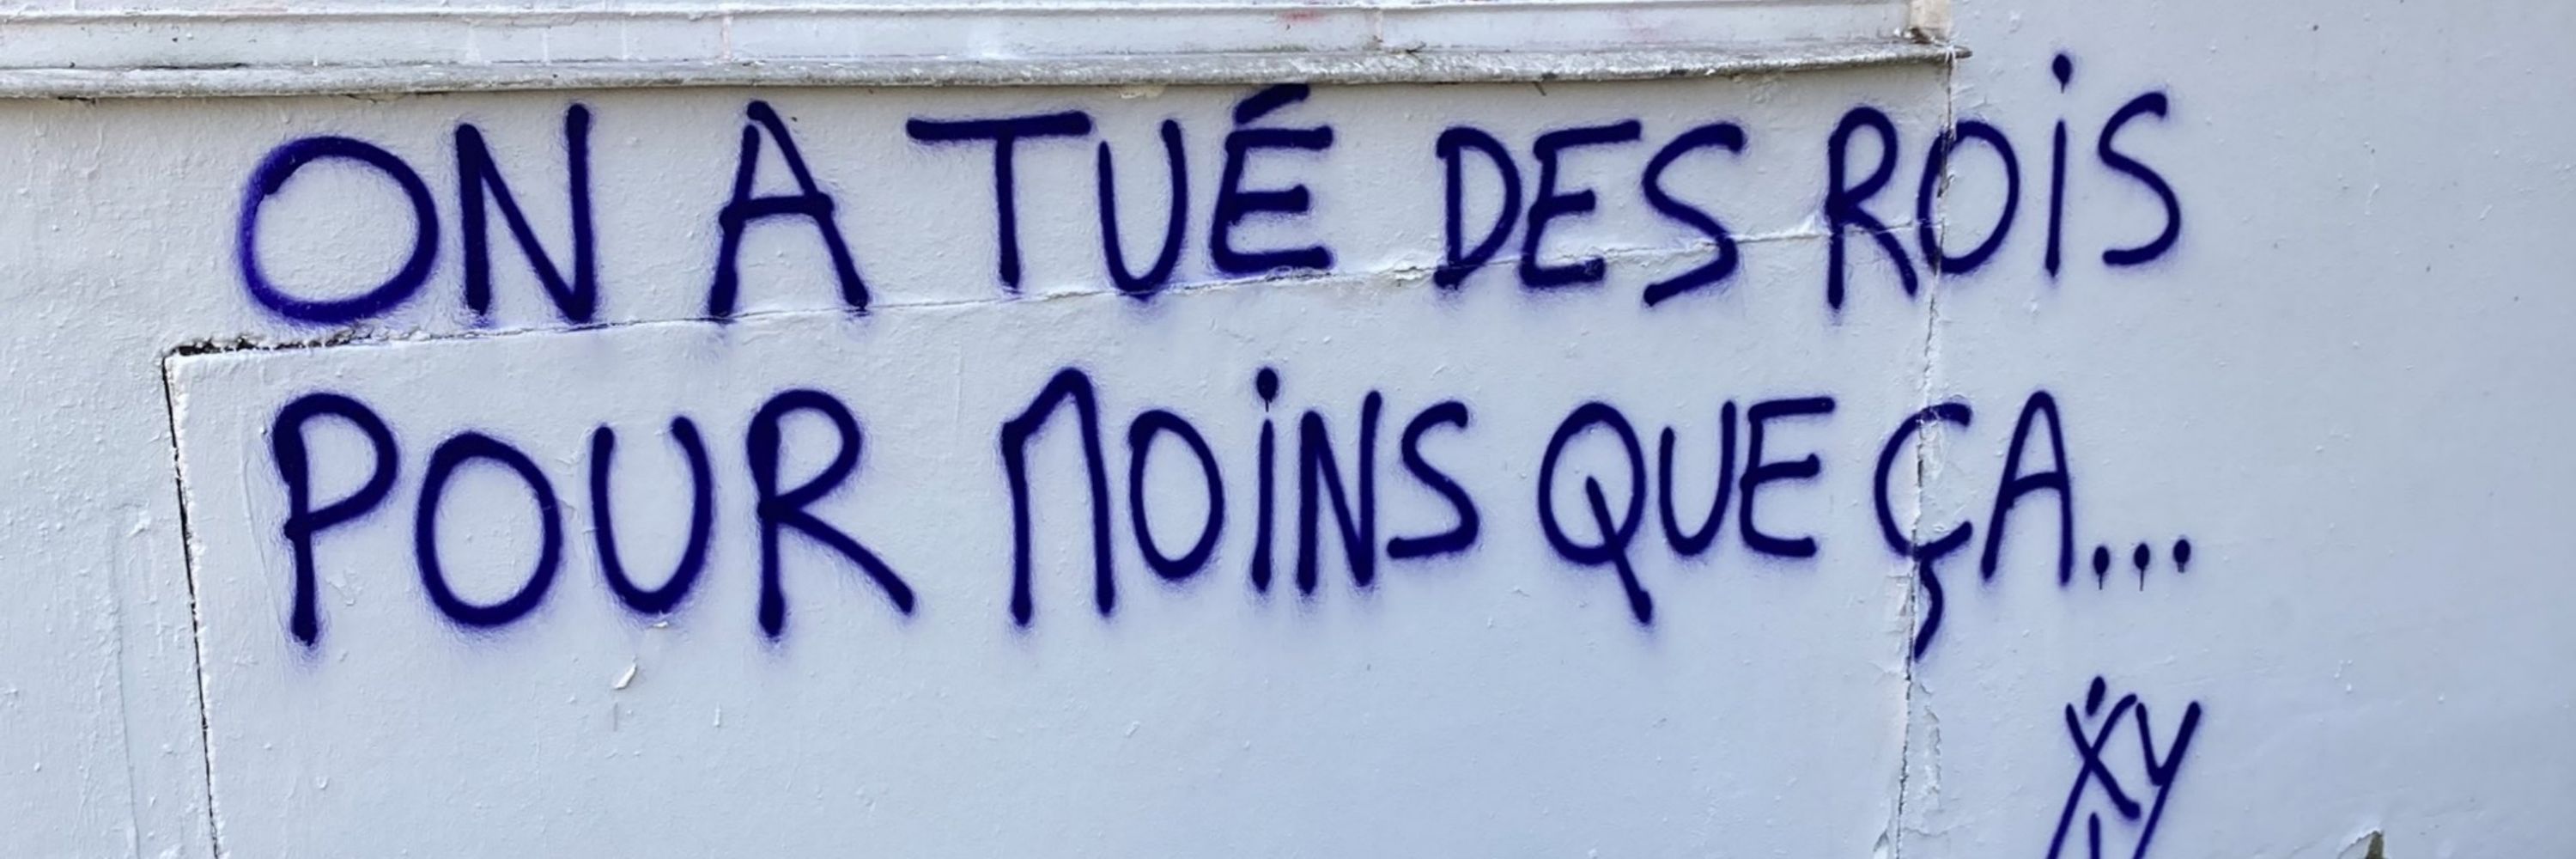 ON A TUÉ DES ROiS
POUR MOiNS QUE ÇA...
XY